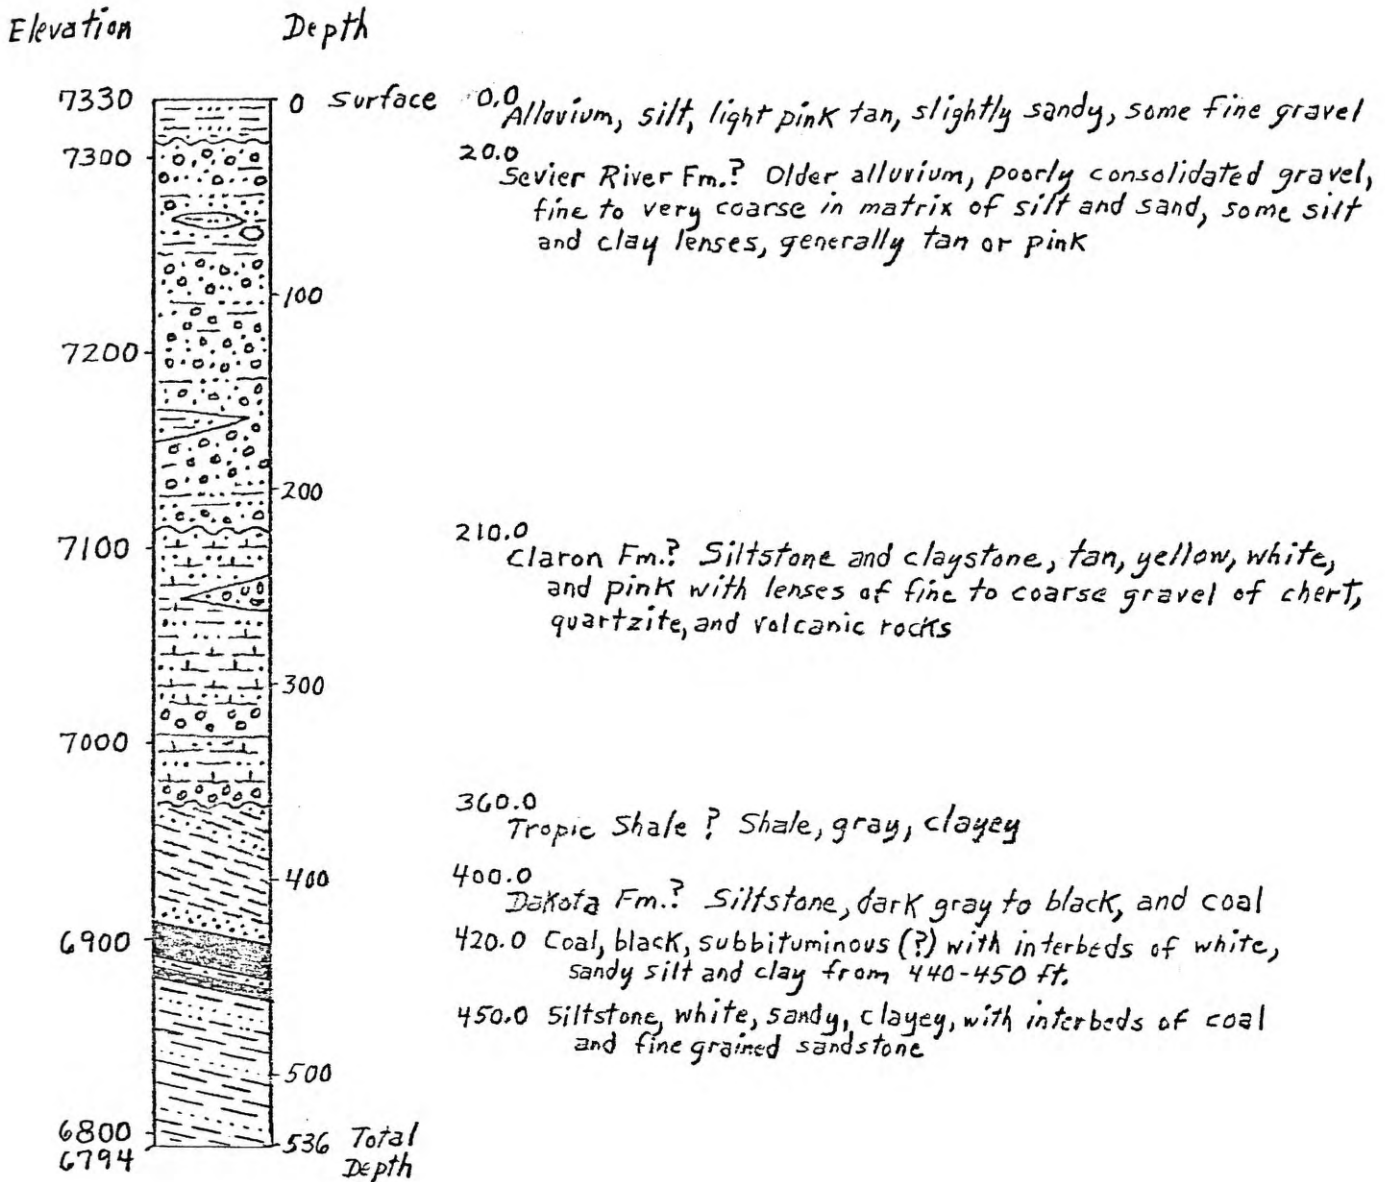 Elevation Depth
7330 0 Surface 0.0
Alluvium, silt, light pink tan, slightly sandy, some fine gravel
7300 20.0
Sevier River Fm.? Older alluvium, poorly consolidated gravel,
fine to very coarse in matrix of silt and sand, some silt
and clay lenses, generally tan or pink
100
7200
200
210.0
7100
Claron Fm.? Siltstone and claystone, tan, yellow, white,
and pink with lenses of fine to coarse gravel of chert,
quartzite, and volcanic rocks
300
7000
360.0
Tropic Shale ? Shale, gray, clayey
400 400.0
Dakota Fm.? Siltstone, dark gray to black, and coal
6900 420.0 Coal, black, subbituminous (?) with interbeds of white,
sandy silt and clay from 440-450 ft.
450.0 Siltstone, white, sandy, clayey, with interbeds of coal
and fine grained sandstone
500
6800 536 Total
6794 Depth